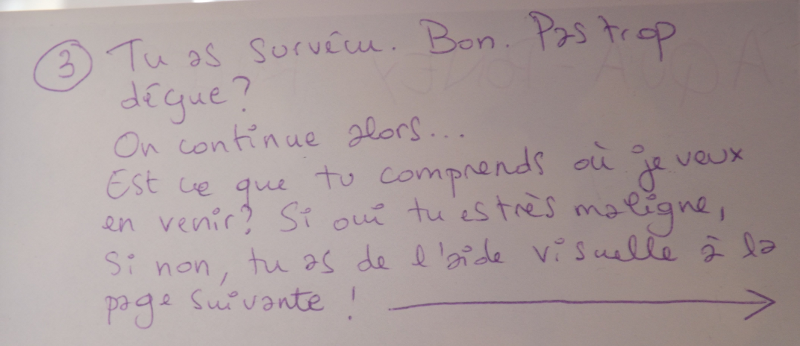 ③ Tu as survécu. Bon. Pas trop
déçue?
On continue alors...
Est ce que tu comprends où je veux
en venir? Si oui tu es très maligne,
Si non, tu as de l'aide visuelle à la
page suivante !